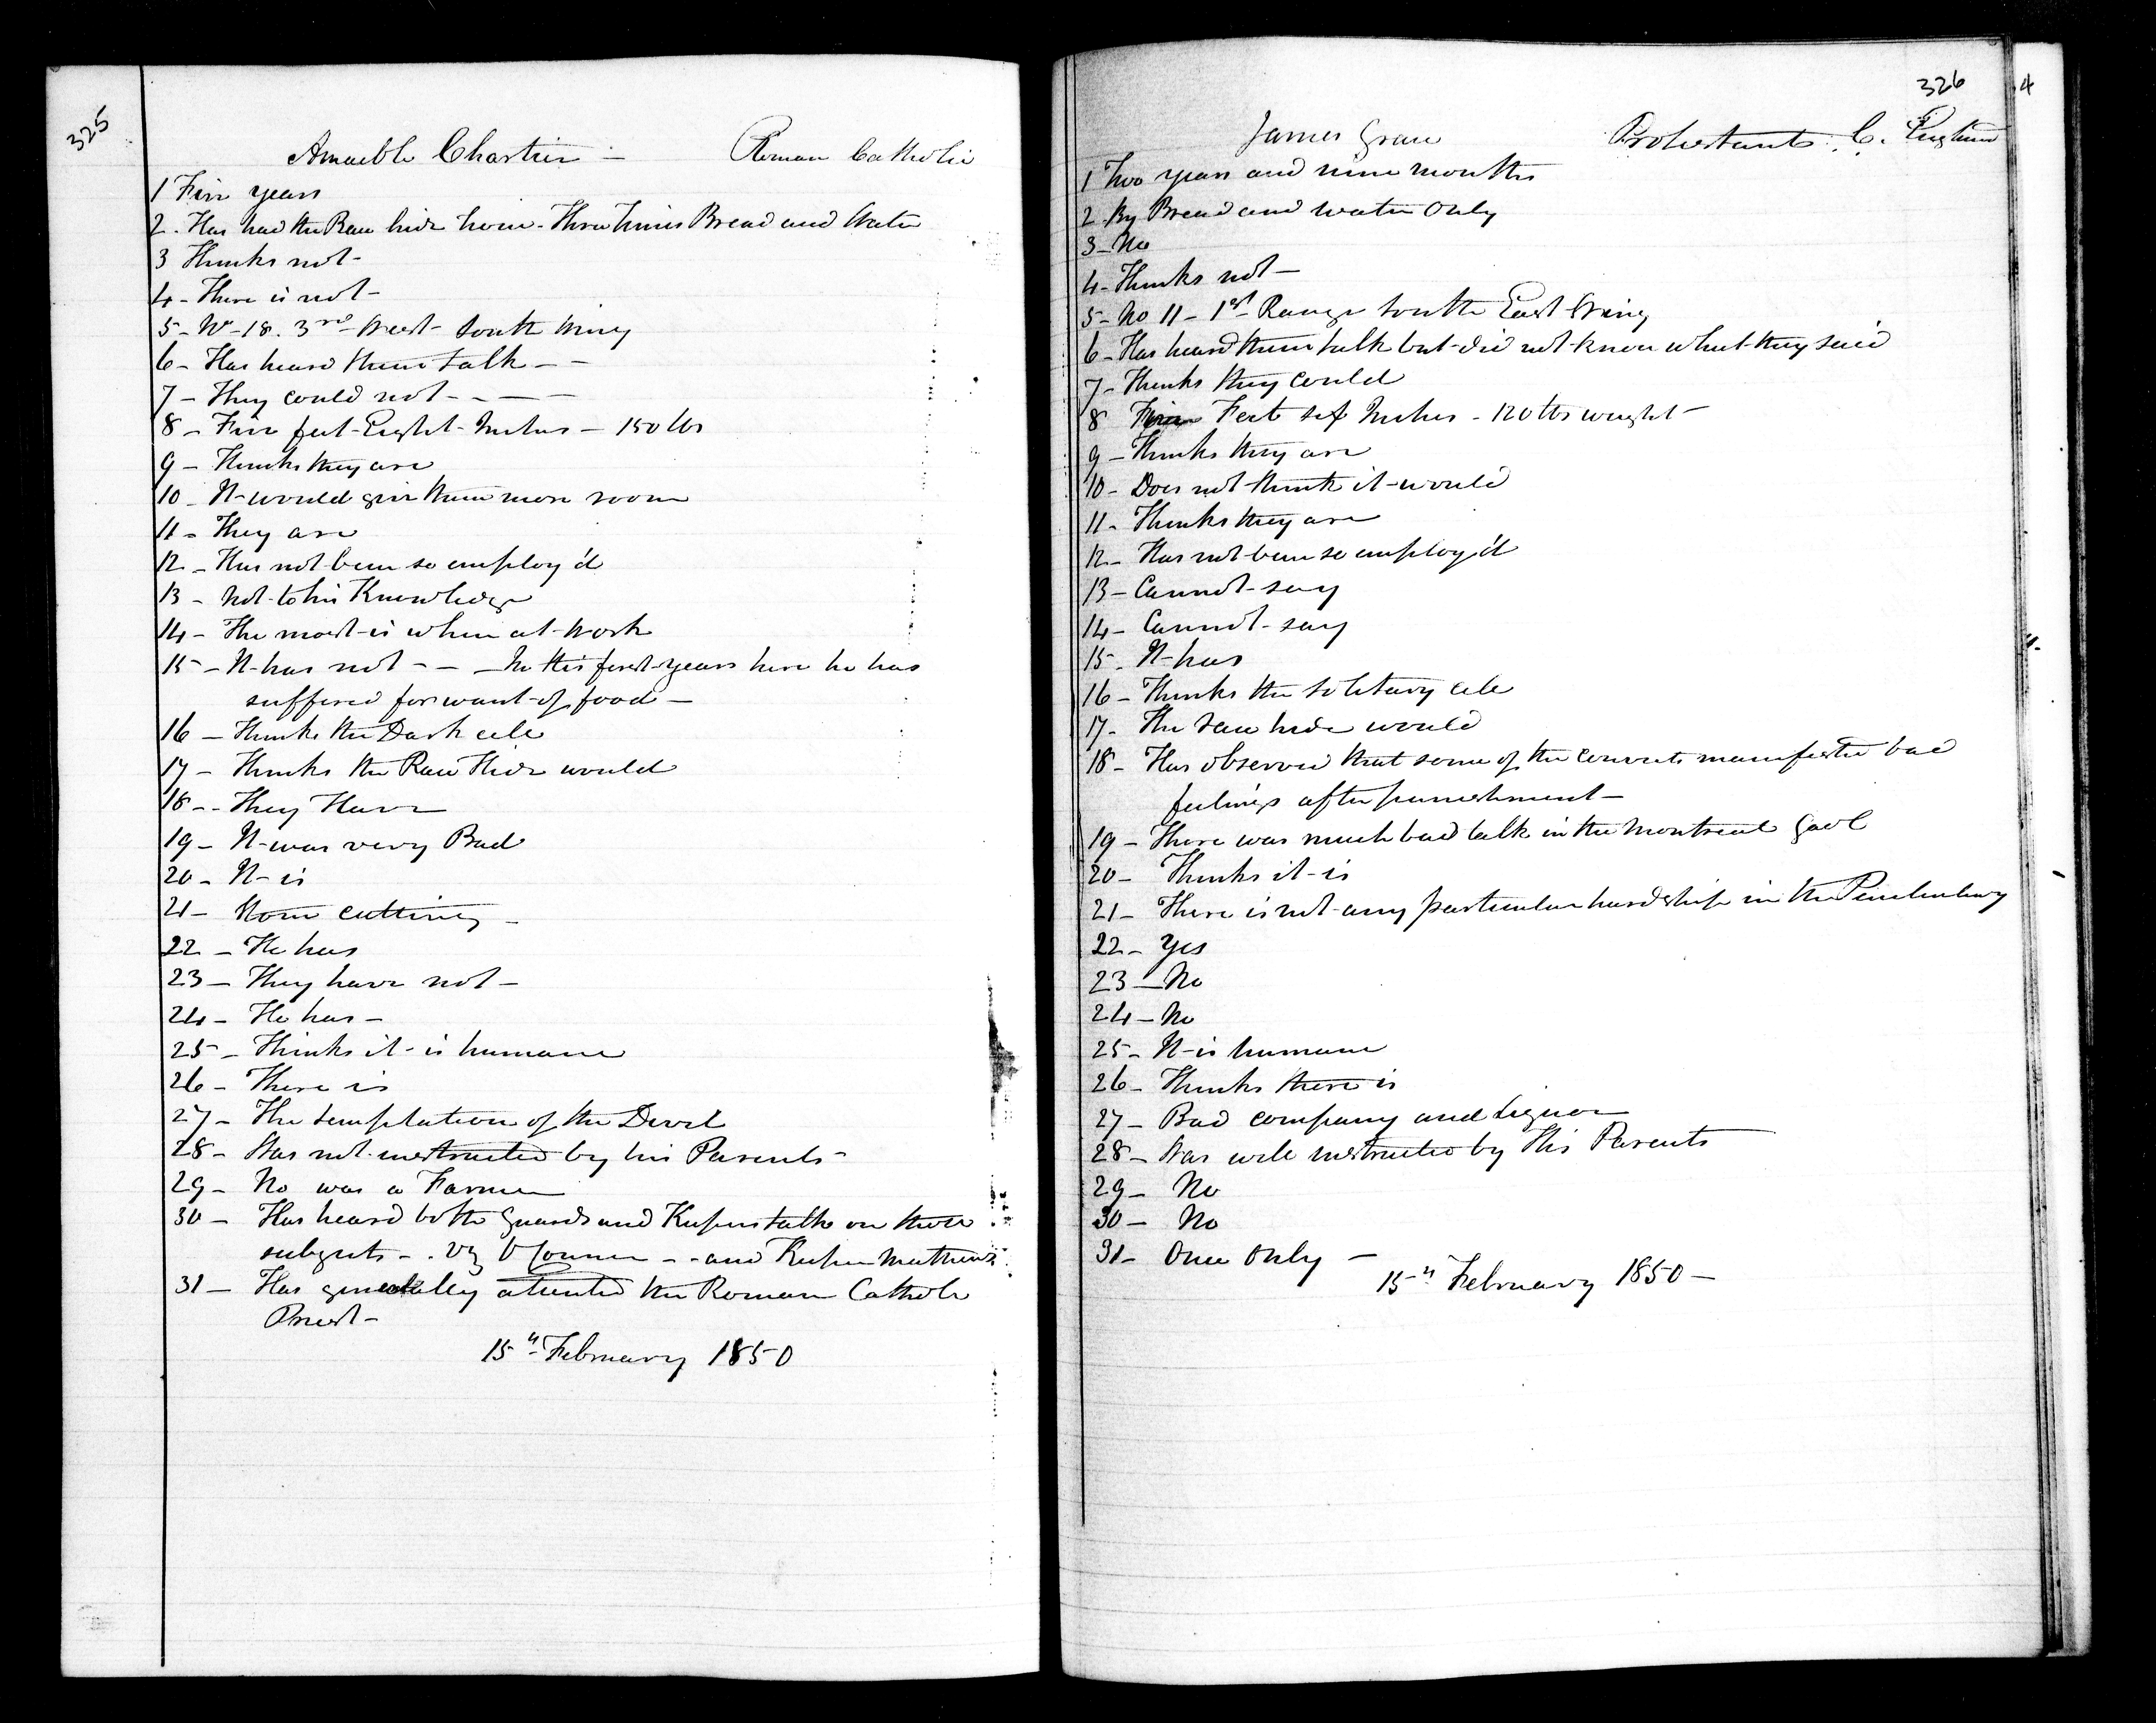 325
Amable Chartier – Roman Catholic
1 Five years
2. Has had the Raw hide twice. Three times Bread and Water
3 Thinks not –
4 – There is not –
5 – No – 18. 3rd West – South Wing
6 – Has heard them talk – –
7 – They could not – – – –
8 – Five feet Eight Inches – 150 lbs
9 – Thinks they are
10 – It would give them more room
11 – They are
12 – Has not been so employ'd
13 – Not to his Knowledge
14 – The most is when at work
15 – It has not – – – In the first years here he has
suffered for want of food –
16 – Thinks the Dark cell
17 – Thinks the Raw Hide would
18 – – They Have
19 – It was very Bad
20 – It is
21 – Stone cutting –
22 – He has
23 – They have not –
24 – He has –
25 – Thinks it is humane
26 – There is
27 – The temptation of the Devil
28 – Was not instructed by his Parents –
29 – No was a Farmer
30 – Has heard both Guards and Keepers talk on those
subjects – . Viz O Connor – – and Keeper Mathews
31 – Has generally attended the Roman Catholic
Priest –
15th February 1850
326
4
James Protestants C. England
1 Two years and nine months
2 – By Bread and water Only
3 – No
4 – Thinks not –
5 – No 11 – 1st Range South East Wing
6 – Has heard them talk but did not know what they said
7 – Thinks they could
8 Five Feet six Inches – 120 lbs weight –
9 – Thinks they are
10 – Does not think it would
11 – Thinks they are
12 – Has not been so employ'd
13 – Cannot say
14 – Cannot say
15 – It has
16 – Thinks the Solitary cell
17 – The raw hide would
18 – Has observed that some of the convicts manifested bad
feelings after punishment –
19 – There was much bad talk in the Montreal Gaol
20 – Thinks it is
21 – There is not any particular hardship in the Penitentiary
22 – Yes
23 – No
24 – No
25 – It is humane
26 – Thinks there is
27 – Bad company and Liquor
28 – Was well instructed by His Parents
29 – No
30 – No
31 – Once Only –
15th February 1850 –